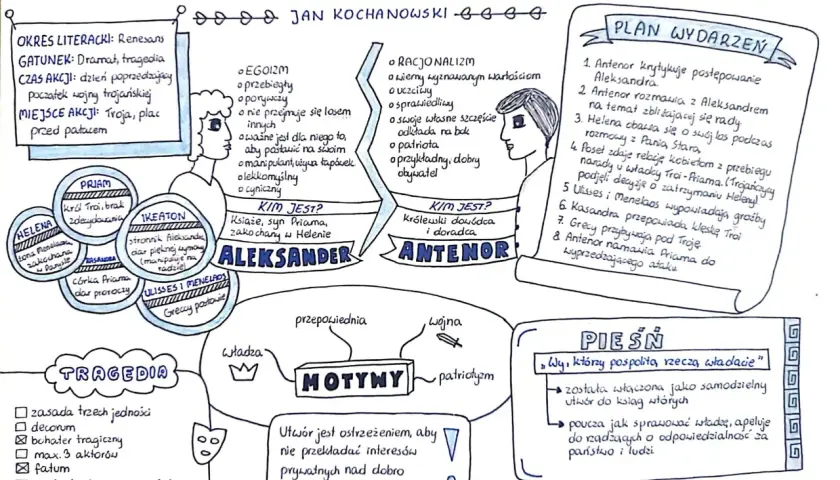 JAN KOCHANOWSKI
OKRES LITERACKI: Renesans
GATUNEK: Dramat, tragedia
CZAS AKCJI: dzień poprzedzający
początek wojny trojańskiej
MIEJSCE AKCJI: Troja, plac
przed pałacem
PRIAM
król Troi, brak
zdecydowania
HELENA
żona Menelaosa,
zakochana
w Parysie
KASANDRA
córka Priama
dar proroczy
IKEATON
stronnik Aleksandra
dar pięknej wymowy
(manipuluje na
radzie)
ULISSES I MENELAOS
Greccy posłowie
EGOIZM
przebiegły
porywczy
nie przejmuje się losem
innych
ważne jest dla niego to,
aby postawić na swoim
manipulant, używa łapówek
lekkomyślny
cyniczny
KIM JEST?
Książe, syn Priama,
zakochany w Helenie
ALEKSANDER
RACJONALIZM
wierny wyznawanym wartościom
uczciwy
sprawiedliwy
swoje własne szczęście
odkłada na bok
patriota
przykładny, dobry
obywatel
KIM JEST?
Królewski dowódca
i doradca
ANTENOR
PLAN WYDARZEŃ
1. Antenor krytykuje postępowanie
Aleksandra.
2. Antenor rozmawia z Aleksandrem
na temat zbliżającej się rady
3. Helena obawia się o swój los podczas
rozmowy z Panią Starą
4. Poseł zdaje relację kobietom z przebiegu
narady u władcy Troi-Priama. (Trojańczycy
podjęli decyzję o zatrzymaniu Heleny)
5 Ulisses i Menelaos wypowiadają groźby
6. Kasandra przepowiada klęskę Troi
7. Grecy przybywają pod Troję
8. Antenor namawia Priama do
wyprzedzającego ataku
TRAGEDIA
zasada trzech jedności
decorum
bohater tragiczny
max. 3 aktorów
fatum
przepowiednia
wojna
władza
patriotyzm
MOTYWY
Utwór jest ostrzeżeniem, aby
nie przekładać interesów
prywatnych nad dobro
PIEŚŃ
"Wy, którzy pospolitą rzeczą władacie"
została włączona jako samodzielny
utwór do ksiąg wtórych
poucza jak sprawować władzę, apeluje
do rządzących o odpowiedzialność za
państwo i ludzi